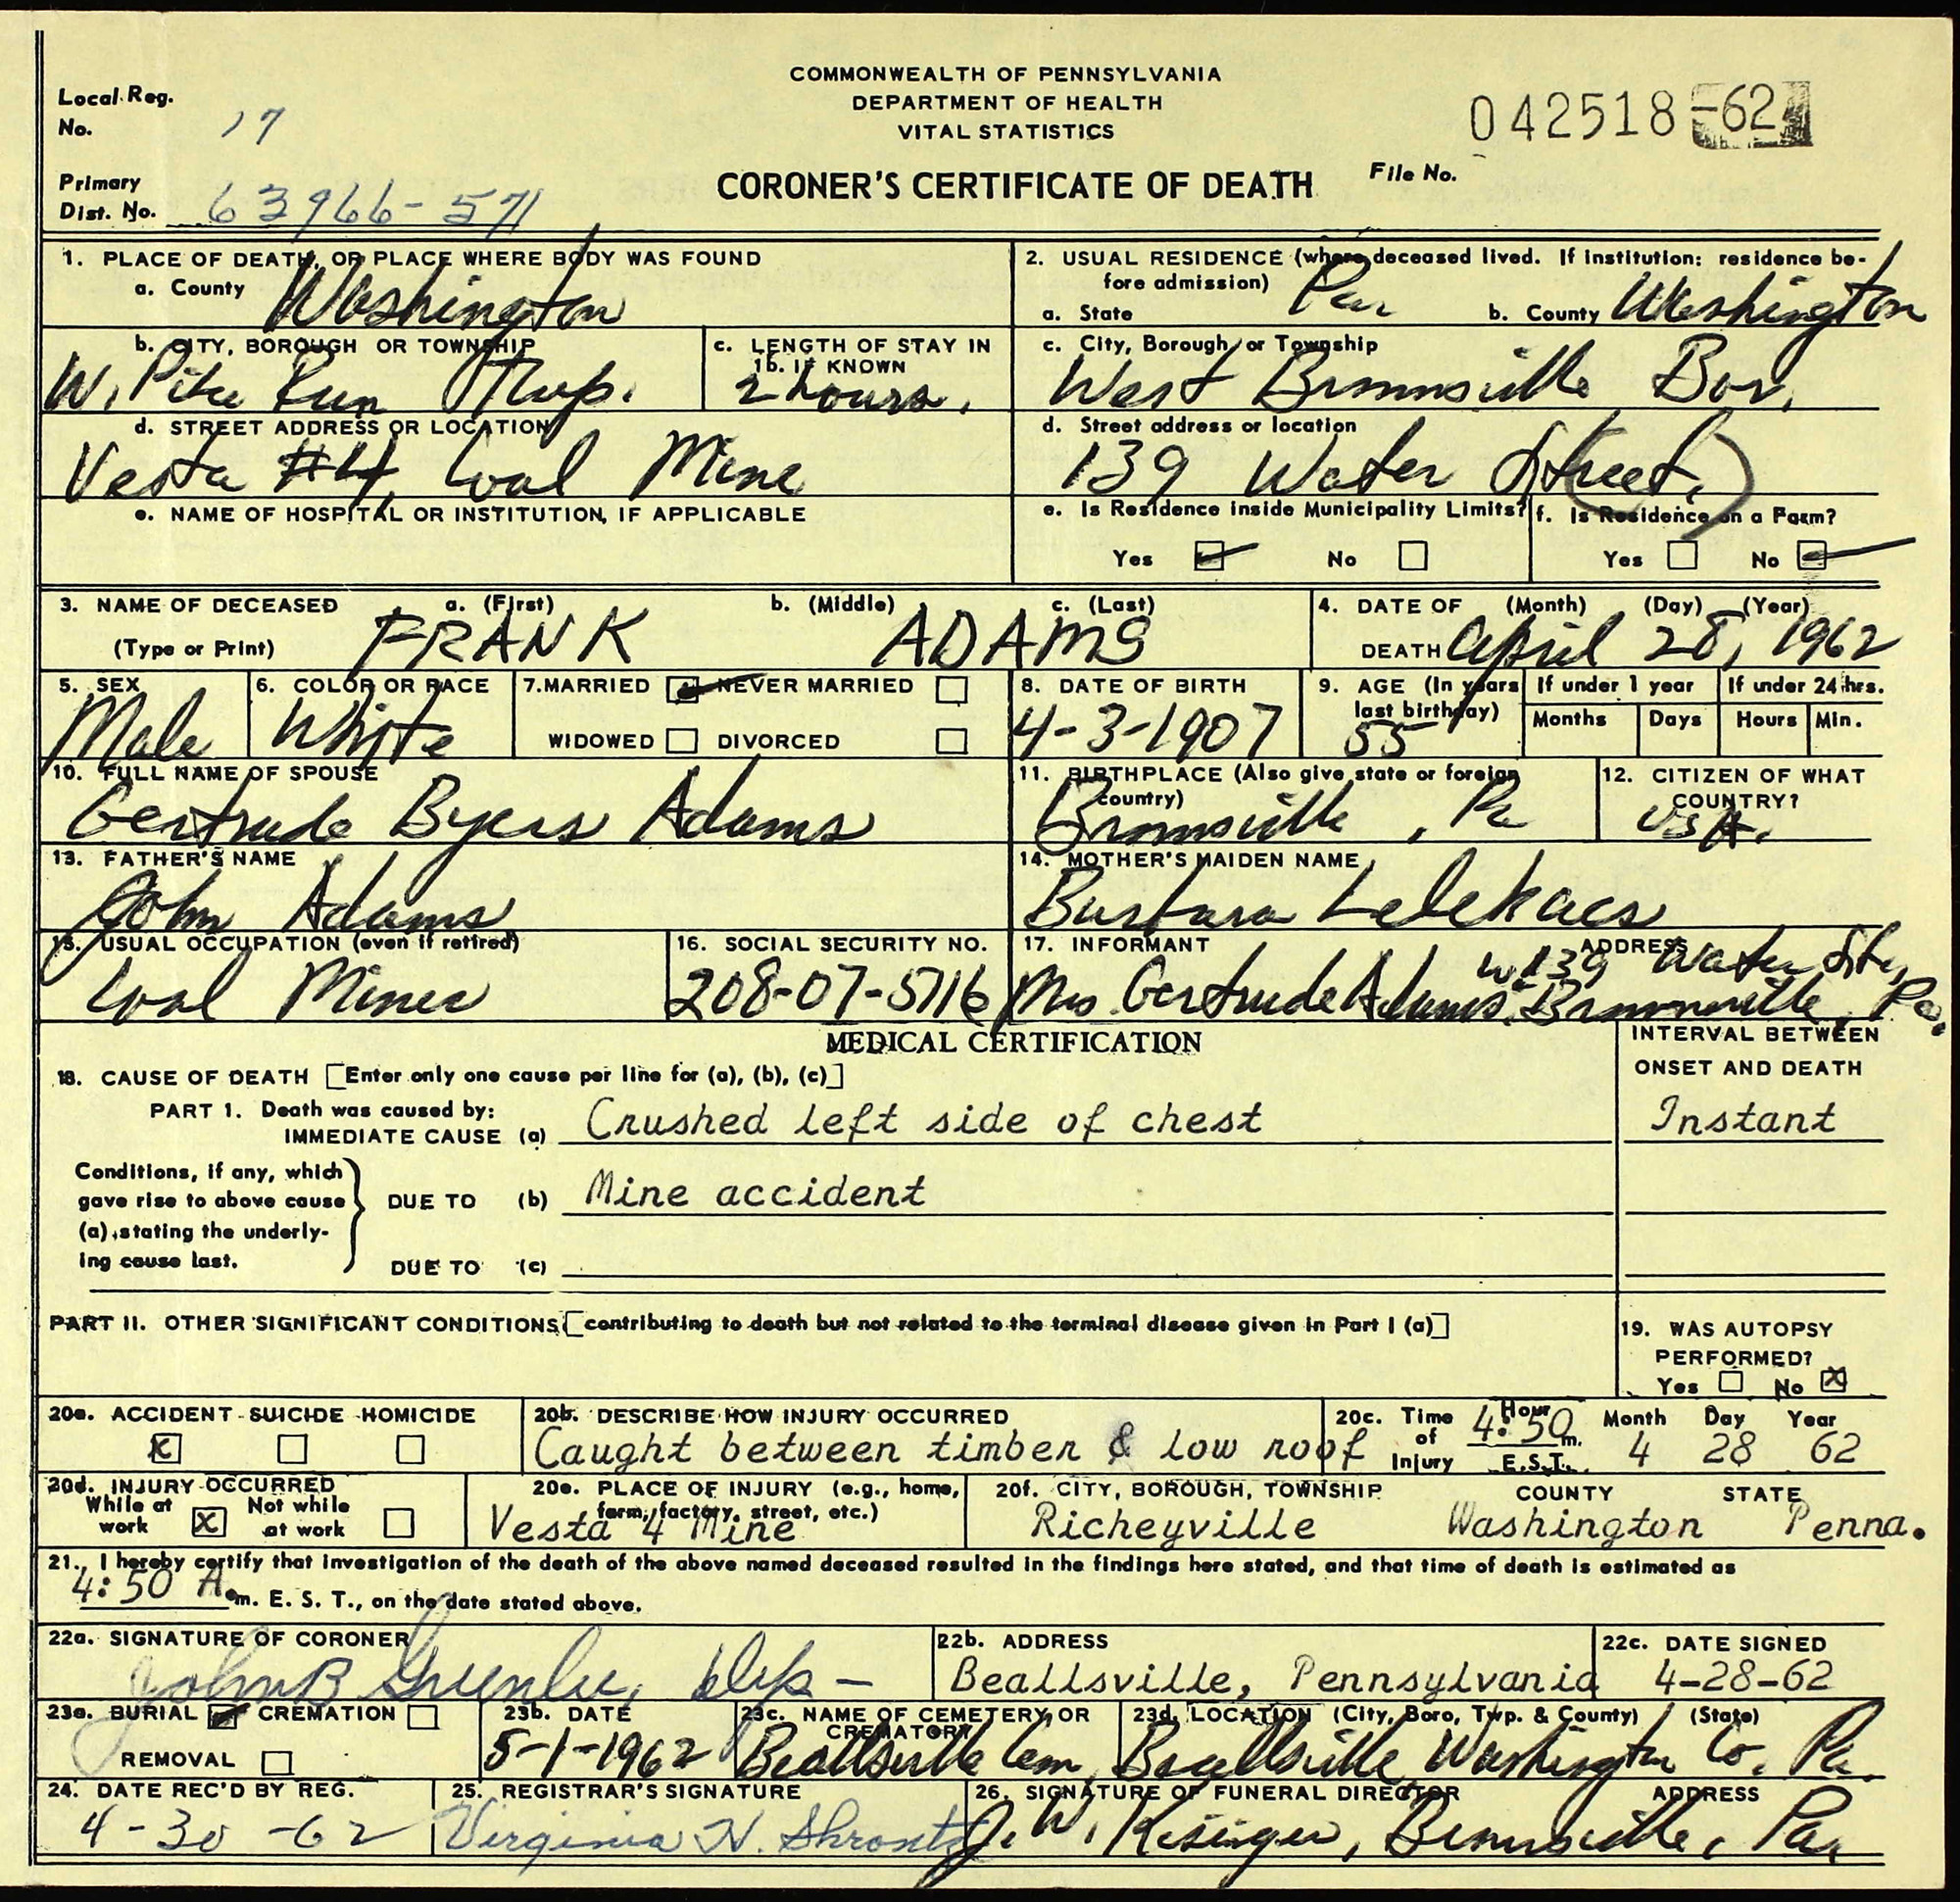 COMMONWEALTH OF PENNSYLVANIA
DEPARTMENT OF HEALTH
VITAL STATISTICS
CORONER'S CERTIFICATE OF DEATH
Local Reg. No. 17
Primary Dist. No. 63966-571
File No. 042518-62
1. PLACE OF DEATH, OR PLACE WHERE BODY WAS FOUND
a. County Washington
b. CITY, BOROUGH OR TOWNSHIP
W. Pike Run Twp.
c. LENGTH OF STAY IN 1b. IF KNOWN
2 hours.
d. STREET ADDRESS OR LOCATION
Vesta #4, Coal Mine
e. NAME OF HOSPITAL OR INSTITUTION, IF APPLICABLE
2. USUAL RESIDENCE (where deceased lived. If institution: residence be-
fore admission)
a. State Pa b. County Washington
c. City, Borough or Township
West Brownsville Bor.
d. Street address or location
139 Water Street,
e. Is Residence inside Municipality Limits? f. Is Residence on a Farm?
Yes No Yes No
3. NAME OF DECEASED a. (First) b. (Middle) c. (Last)
(Type or Print) FRANK ADAMS
4. DATE OF (Month) (Day) (Year)
DEATH April 28, 1962
5. SEX
Male
6. COLOR OR RACE
White
7. MARRIED NEVER MARRIED
WIDOWED DIVORCED
8. DATE OF BIRTH
4-3-1907
9. AGE (In years last birthday)
55
If under 1 year If under 24 hrs.
Months Days Hours Min.
10. FULL NAME OF SPOUSE
Gertrude Byers Adams
11. BIRTHPLACE (Also give state or foreign country)
Brownsville, Pa
12. CITIZEN OF WHAT COUNTRY?
USA.
13. FATHER'S NAME
John Adams
14. MOTHER'S MAIDEN NAME
Barbara Lelekacs
15. USUAL OCCUPATION (even if retired)
Coal Miner
16. SOCIAL SECURITY NO.
208-07-5716
17. INFORMANT ADDRESS
139 Water St.,
Mrs. Gertrude Adams W. Brownsville, Pa.
MEDICAL CERTIFICATION
INTERVAL BETWEEN
ONSET AND DEATH
18. CAUSE OF DEATH [Enter only one cause per line for (a), (b), (c)]
PART 1. Death was caused by:
IMMEDIATE CAUSE (a) Crushed left side of chest Instant
Conditions, if any, which
gave rise to above cause
(a), stating the underly-
ing cause last.
DUE TO (b) Mine accident
DUE TO (c)
PART II. OTHER SIGNIFICANT CONDITIONS [contributing to death but not related to the terminal disease given in Part I (a)]
19. WAS AUTOPSY
PERFORMED?
Yes No X
20a. ACCIDENT SUICIDE HOMICIDE
X
20b. DESCRIBE HOW INJURY OCCURRED
Caught between timber & low roof
20c. Time of Injury Hour 4:50 m. E.S.T.
Month Day Year
4 28 62
20d. INJURY OCCURRED
While at work X Not while at work
20e. PLACE OF INJURY (e.g., home,
farm, factory, street, etc.)
Vesta 4 Mine
20f. CITY, BOROUGH, TOWNSHIP COUNTY STATE
Richeyville Washington Penna.
21. I hereby certify that investigation of the death of the above named deceased resulted in the findings here stated, and that time of death is estimated as
4:50 A.m. E. S. T., on the date stated above.
22a. SIGNATURE OF CORONER
John B Greenlee, Dep -
22b. ADDRESS
Beallsville, Pennsylvania
22c. DATE SIGNED
4-28-62
23a. BURIAL CREMATION
REMOVAL
23b. DATE
5-1-1962
23c. NAME OF CEMETERY OR CREMATORY
Beallsville Cem.
23d. LOCATION (City, Boro, Twp. & County) (State)
Beallsville, Washington Co. Pa.
24. DATE REC'D BY REG.
4-30-62
25. REGISTRAR'S SIGNATURE
Virginia N. Shrontz
26. SIGNATURE OF FUNERAL DIRECTOR ADDRESS
J. W. Kisinger, Brownsville, Pa.